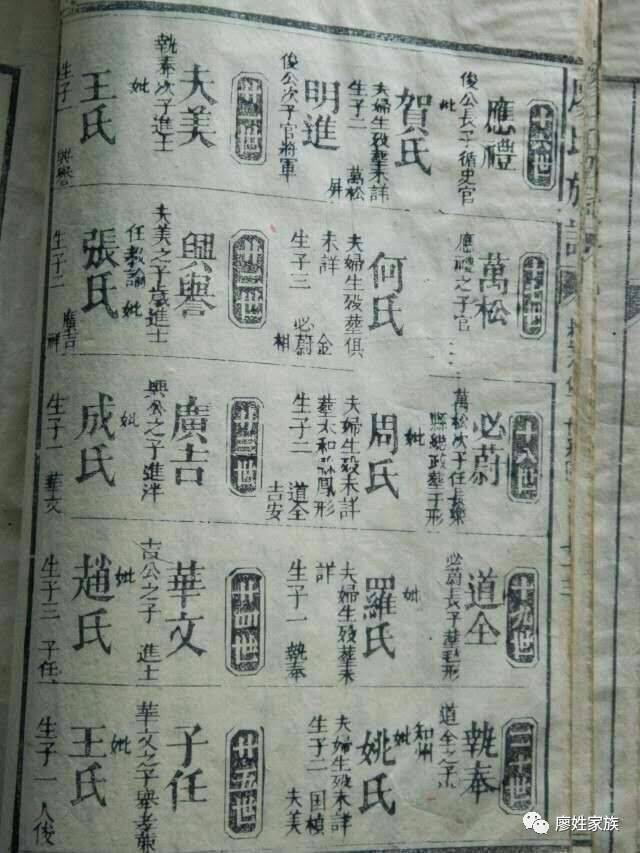 廖氏族譜
十六世
應禮
俊公長子循史官
妣
賀氏
夫婦生歿葬未詳
生子二 萬松 昇
明進
俊公次子官將軍
十七世
萬松
應禮之子官
何氏
夫婦生歿葬俱
未詳
生子三 必蔚 金 相
十八世
必蔚
萬松次子任長樂
縣總政葬于形
妣
周氏
夫婦生歿未詳
葬太和
鳳形
生子二 道全 吉安
十九世
道全
必蔚長子葬毛形
妣
羅氏
夫婦生歿葬未
詳
生子一 執奉
二十世
執奉
道全之子
和州
妣
姚氏
夫婦生歿未詳
生子二 国楨 夫美
廿一世
夫美
執奉次子進士
妣
王氏
生子一 興譽
廿二世
興譽
夫美之子歲進士
任教諭
妣
張氏
生子二 廣吉 祥
廿三世
廣吉
興公之子進泮
妣
成氏
生子一 華文
廿四世
華文
吉公之子 進士
妣
趙氏
生子三 子任
廿五世
子任
華文之子舉孝廉
妣
王氏
生子一 人俊
廖姓家族